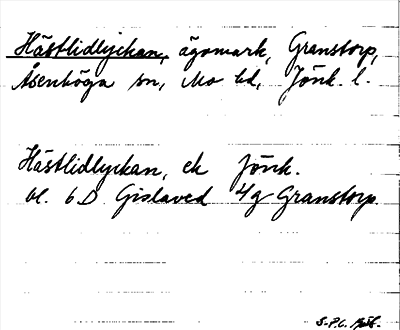 Hästlidlyckan, ägomark, Granstorp,
Åsenhöga sn, Mo hd, Jönk. l.
Hästlidlyckan, ek Jönk.
bl. 6D Gislaved 4g Granstorp.
S-P.C.